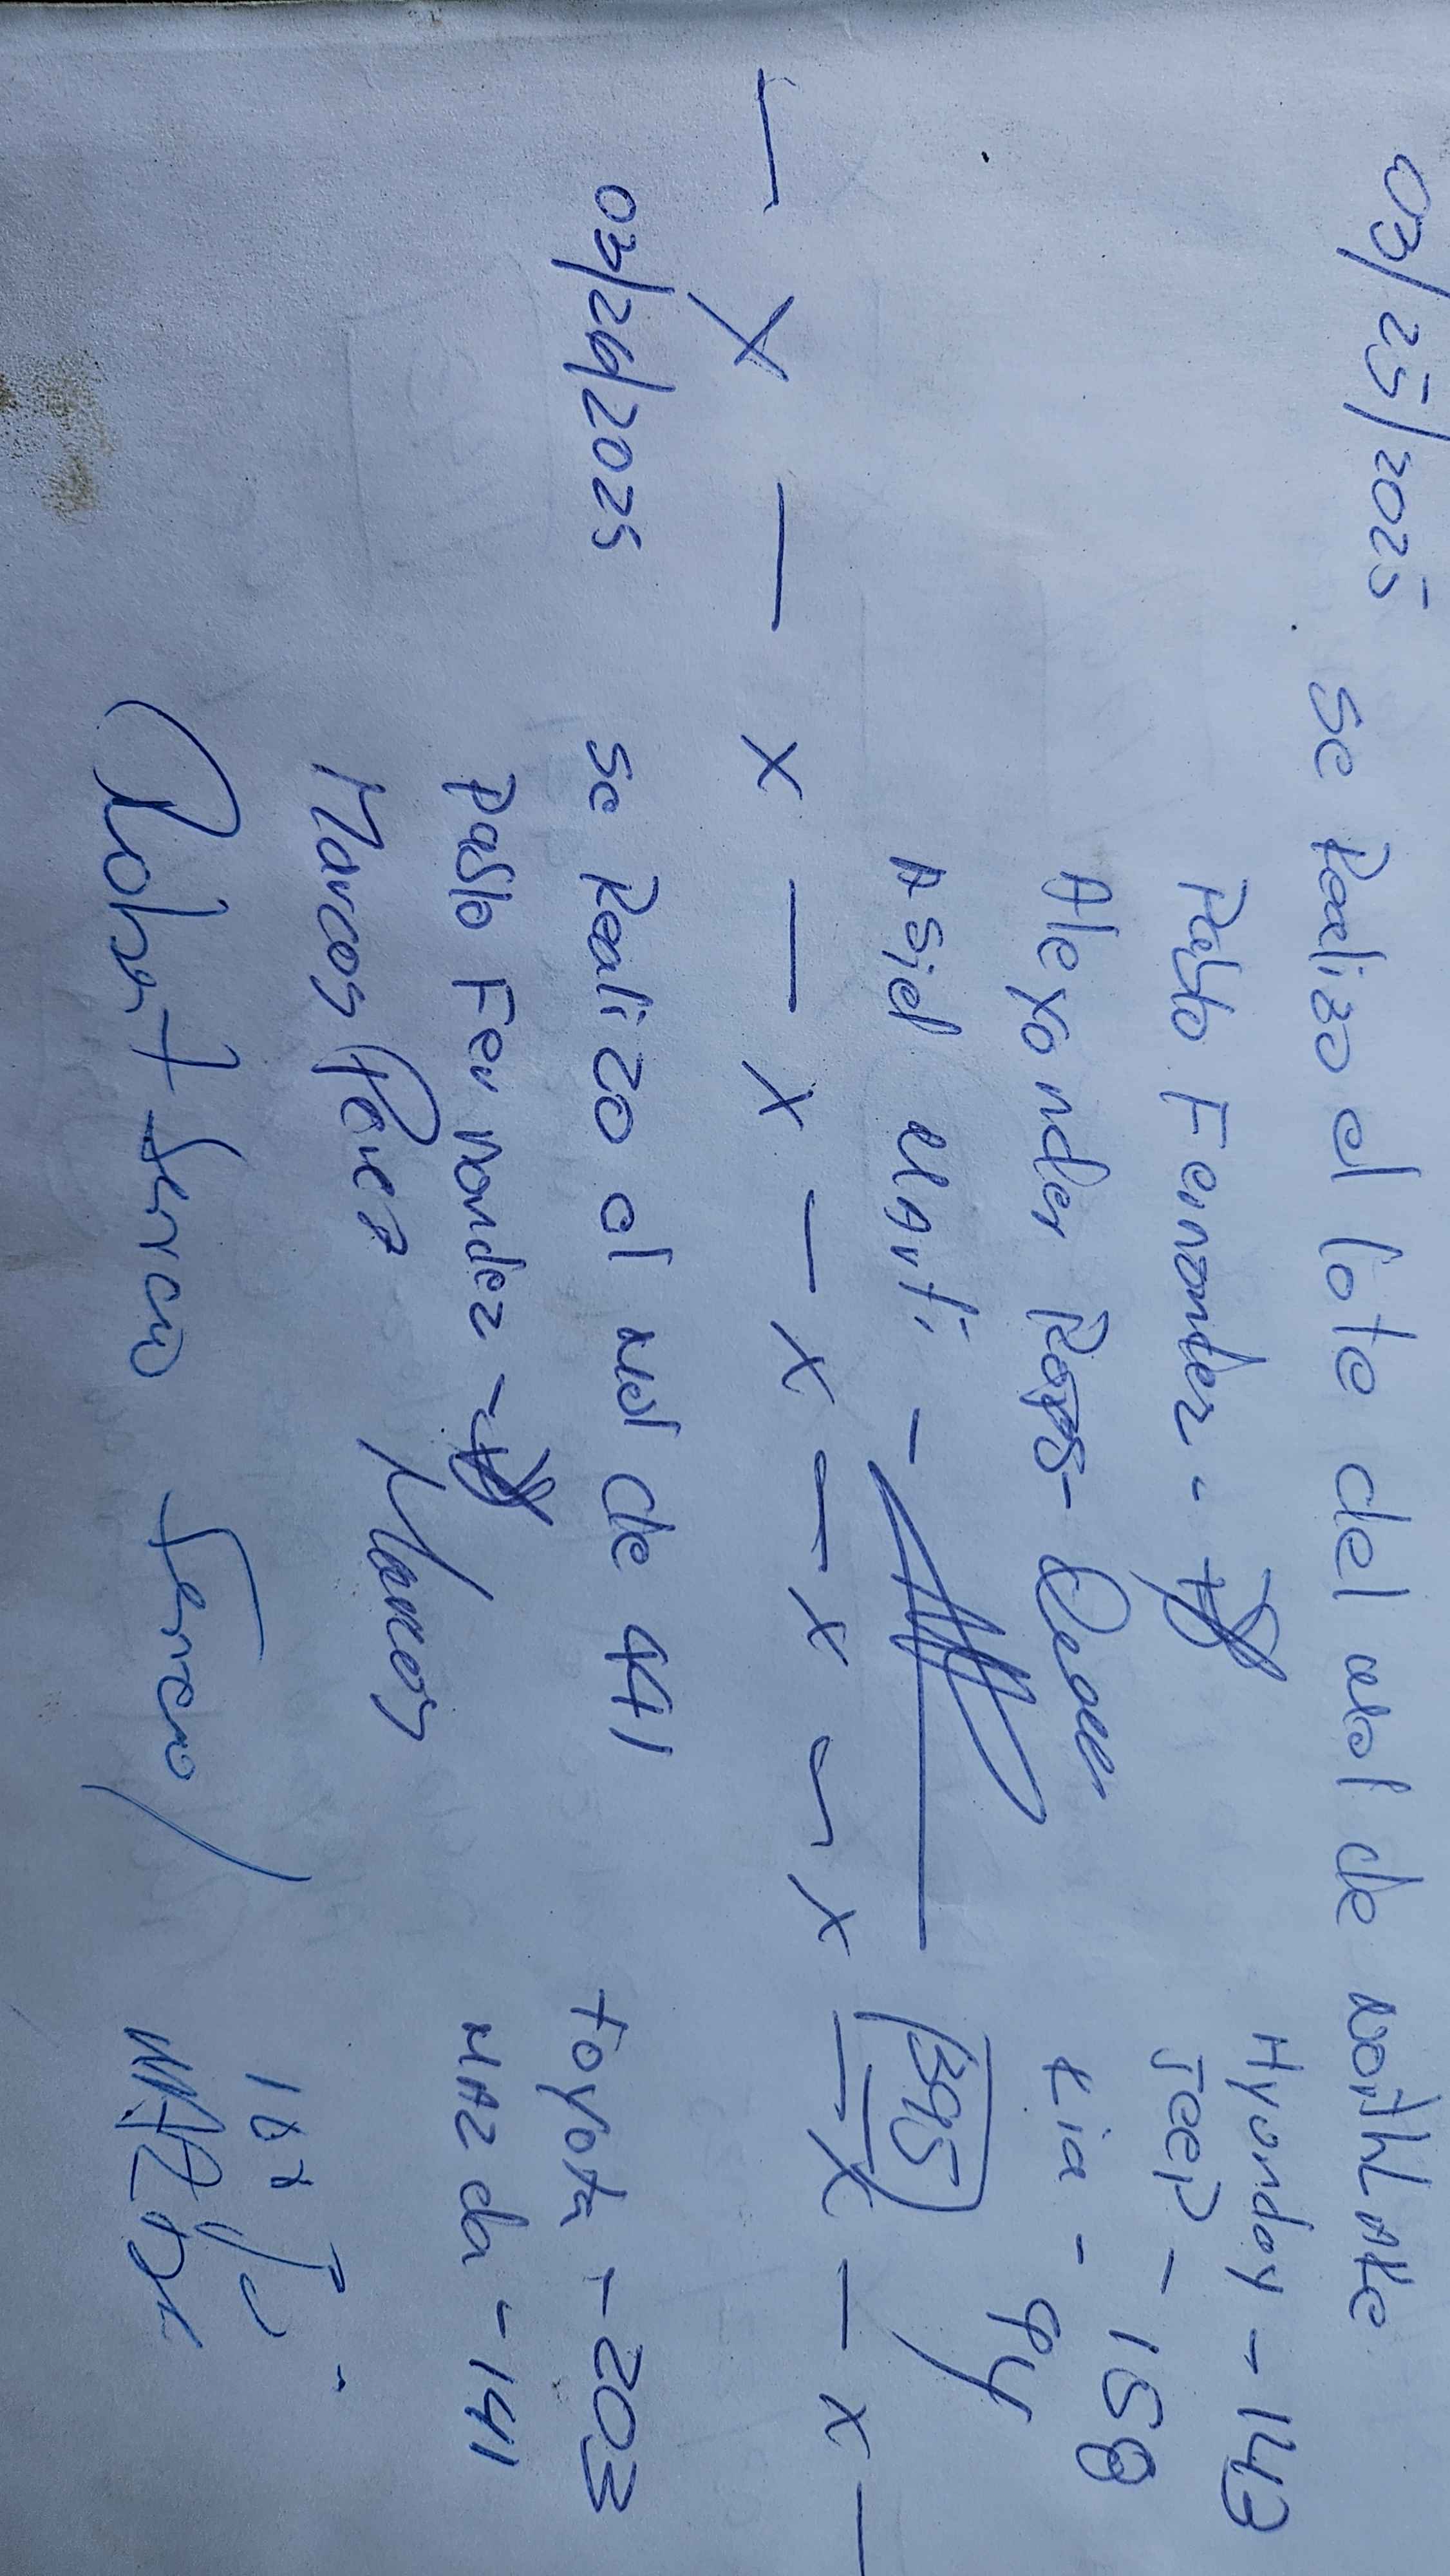 03/25/2025 se Realizo el lote del mol de
Hyunday - 143
Pablo Fernandez -
Jeep - 158
Alexander Rojas -
Kia - 94
Asiel Marti -
395
- X - X - X - X - X - X - X - X -
03/26/2025 se Realizo el mol de 441
toyota - 203
Pablo Fernandez -
Mazda - 141
Marcos Perez Marcos
Robert